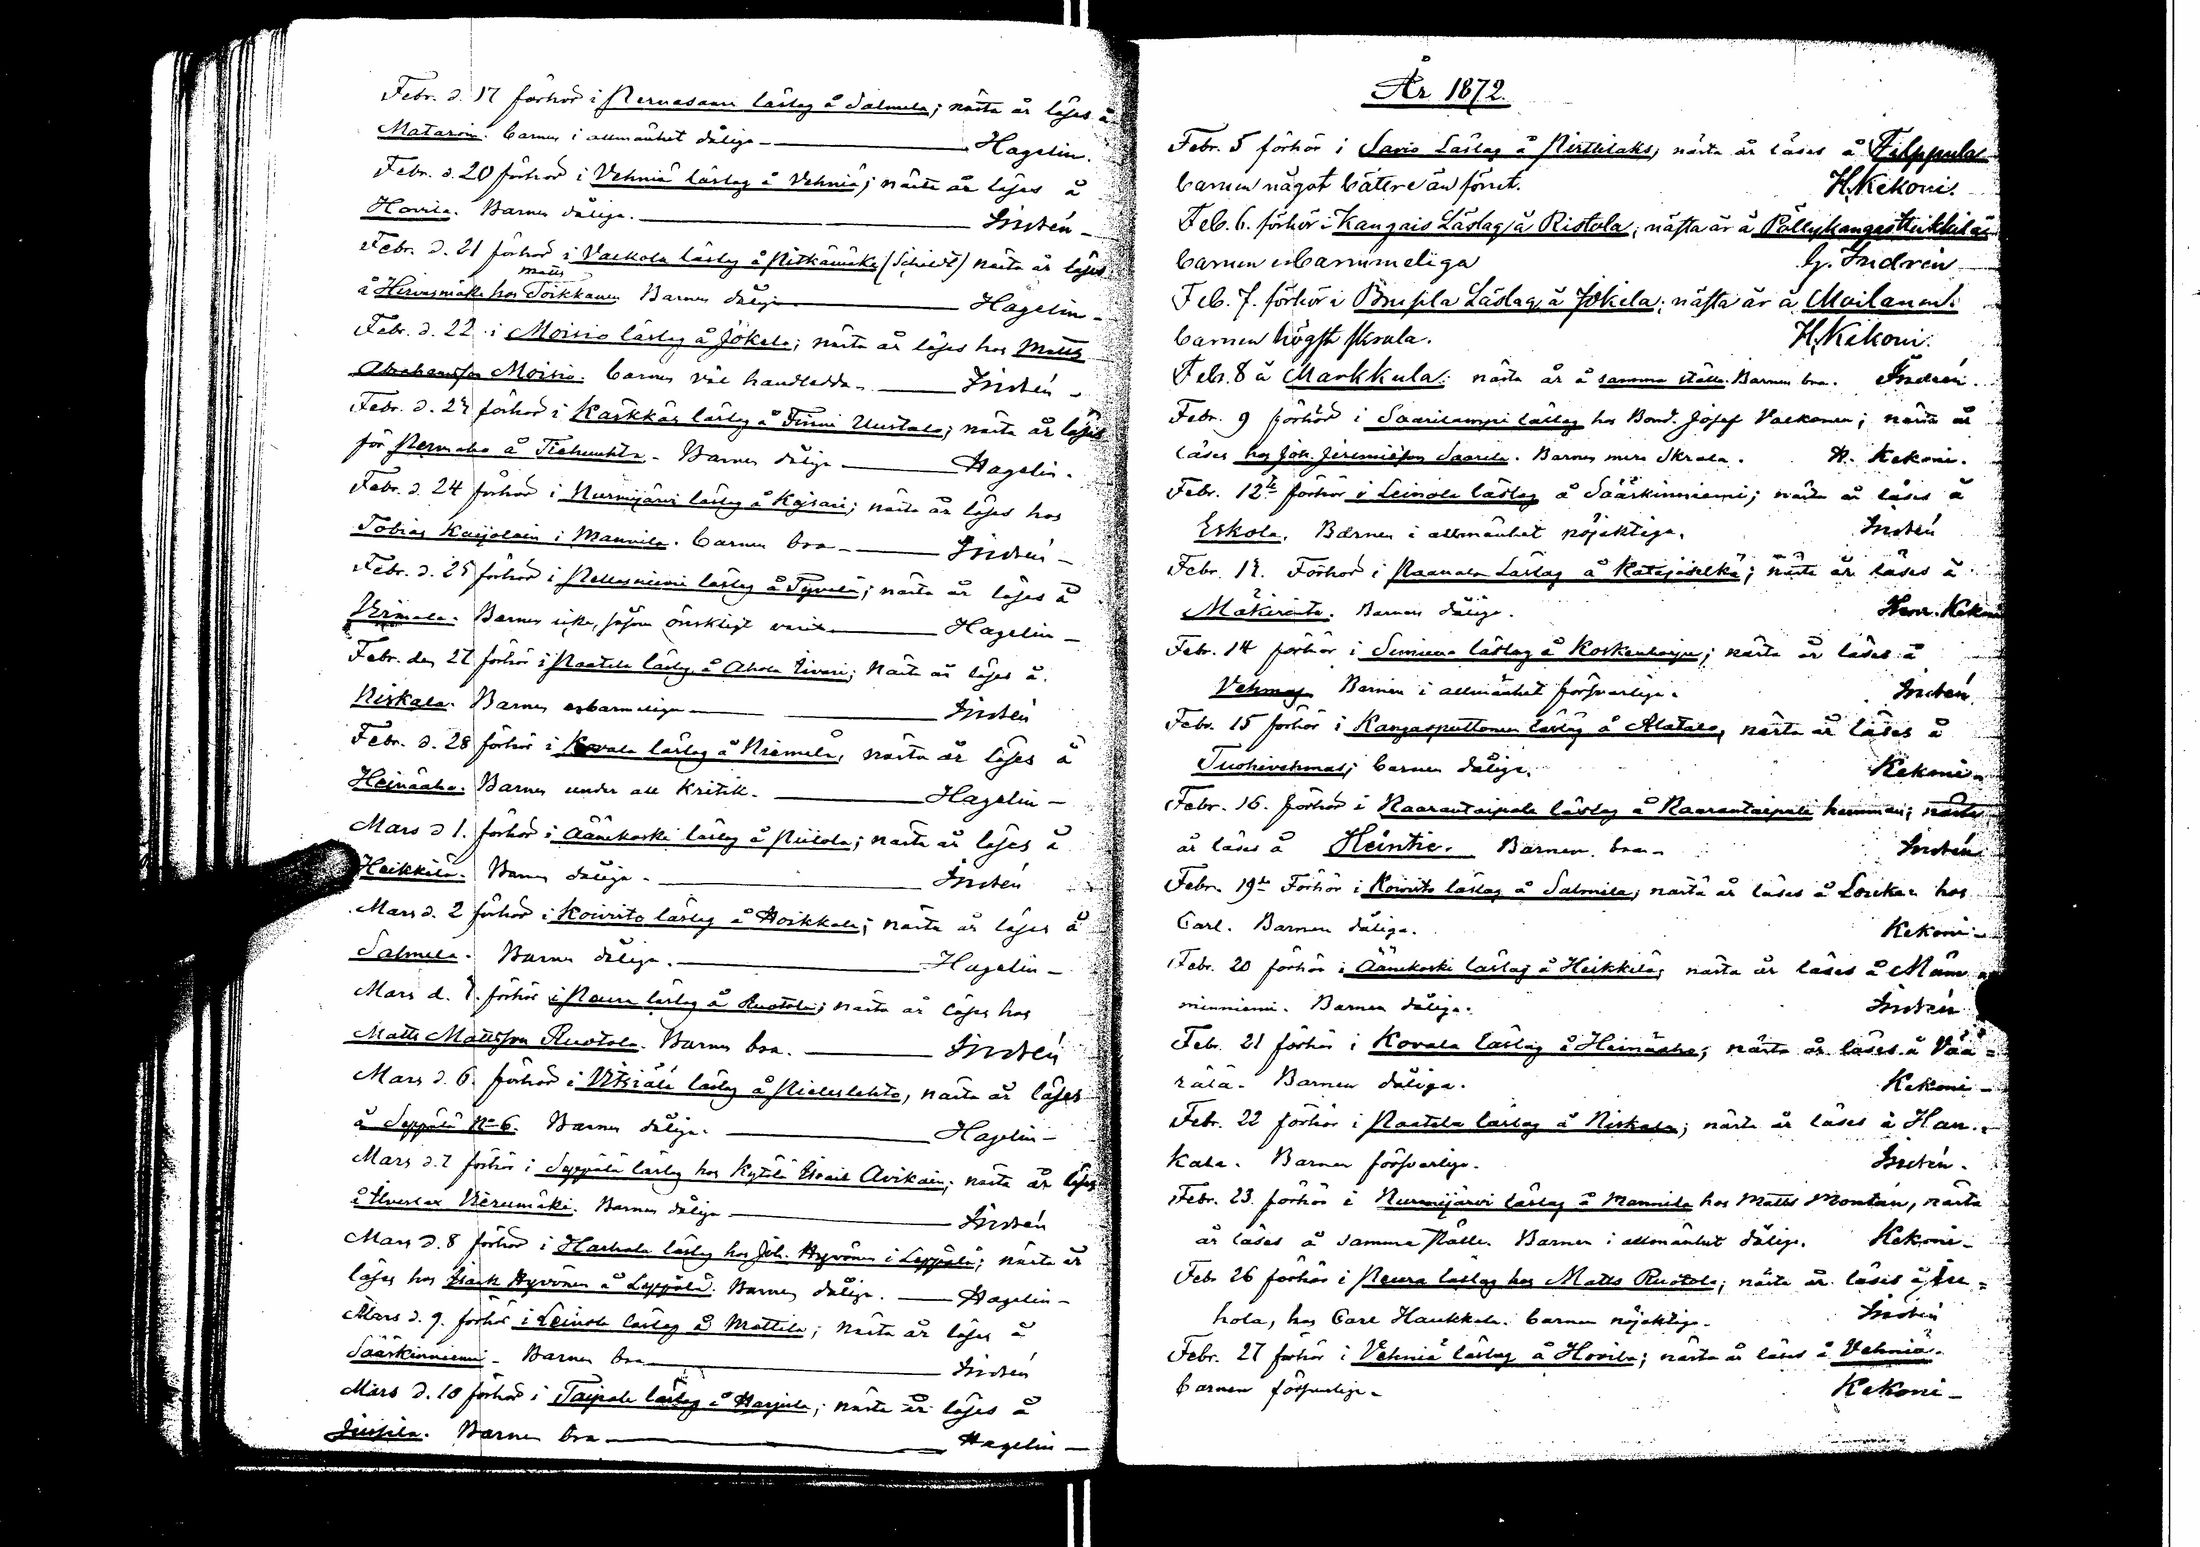 Febr. d. 17 förhör i Pernasaari läslag å Salmela; nästa år läses å
Mataroin. barnen i allmänhet dåliga — Hagelin.
Febr. d. 20 förhör i Vehniä läslag å Vehniä; nästa år läses å
Hovila. Barnen dåliga. — Indrén —
Febr. d. 21 förhör i Valkola läslag å Pitkämäki (Schildt) nästa år läses
å Hirvasmäki hos Matts Toikkanen Barnen dåliga — Hagelin —
Febr. d. 22 i Moisio läslag å Jokela; nästa år läses hos Matts
Abrahamsson Moisio. barnen väl handledda. — Indrén —
förhör i Kärkkäs läslag å Finni Uustalo; nästa år läses
för å Tiehuuhta. Barnen dåliga — Hagelin.
Febr. d. 24 förhör i Nurmijärvi läslag å Kajsari; nästa år läses hos
Tobias i Mannila. barnen bra — Indrén —
Febr. d. 25 förhör i läslag å Tyvelä; nästa år läses å
Barnen icke, såsom önskligt vore — Hagelin —
Febr. den 27 förhör i Paatela läslag å Ahola Iivari; nästa år läses å
Niskala. Barnen erbarmeliga — Indrén
Febr. d. 28 förhör i Kovala läslag å Niemelä, nästa år läses å
Heinäaho. Barnen under all kritik. — Hagelin —
Mars d 1. förhör i Äänekoski läslag å Piilola; nästa år läses å
Heikkilä. Barnen dåliga. — Indrén
Mars d. 2 förhör i Koivisto läslag å Hoikkala; nästa år läses å
Salmela. Barnen dåliga. — Hagelin —
Mars d. förhör i Peura läslag å Ruotola; nästa år läses hos
Matts Mattsson Ruotola. Barnen bra. — Indrén
Mars d. 6. förhör i läslag å Pieleslehto, nästa år läses
å Seppälä No 6. Barnen dåliga. — Hagelin —
Mars d. 7 förhör i Seppälä läslag hos Kytölä Avikain; nästa år läses
å Vierumäki. Barnen dåliga — Indrén
Mars d. 8 förhör i läslag hos Joh. Hyvönen i Leppälä; nästa år
läses hos Isack Hyvönen å Leppälä. Barnen dåliga. — Hagelin —
Mars d. 9. förhör i Leinola läslag å Mattila; nästa år läses å
Sääskinniemi. Barnen bra — Indrén
Mars d. 10 förhör i Taipale läslag å Harjula; nästa år läses å
Juusila. Barnen bra — Hagelin —
År 1872.
Febr. 5 förhör i Savio Läslag å Pirttilaks, nästa år läses å Filppula
barnen något bättre än förut. H. Kekoni.
Feb. 6. förhör i Kangais Läslag å Ristola; nästa år å Pöllykangas Heikkilä
barnen erbarmmeliga G. Indrén
Feb. 7. förhör i Läslag å Jokela; nästa år å Moilanen
barnen högst skrala. H. Kekoni.
Feb. 8 å Markkula. nästa år å samma ställe. Barnen bra. Indrén.
Febr. 9 förhör i Saarilampi läslag hos Bond. Josef Valkonen; nästa år
läses hos Joh. Jeremiæson Saarela. Barnen mera skrala. H. Kekoni.
Febr. 12te förhör i Leinola läslag å Sääskinniemi; nästa år läses å
Eskola. Barnen i allmänhet nöjaktiga. Indrén
Febr. Förhör i Paavala Läslag å Katajaselkä; nästa år läses å
Mäkiranta. Barnen dåliga. Henr. Kekoni
Febr. 14 förhör i Sumiena läslag å Koskenharju; nästa år läses å
Vehmas Barnen i allmänhet försvarliga. Indrén
Febr. 15 förhör i Kangasputtonen läslag å Alatalo, nästa år läses å
Tuohivehmas; barnen dåliga. Kekoni —
Febr. 16. förhör i Naarantaipale läslag å Naarantaipale hemman; nästa
år läses å Heintie. Barnen bra. Indrén
Febr. 19de Förhör i Koivisto läslag å Salmela; nästa år läses å hos
Carl. Barnen dåliga. Kekoni —
Febr. 20 förhör i Äänekoski läslag å Heikkilä; nästa år läses å Mäm=
minniemi. Barnen dåliga. Indrén
Febr. 21 förhör i Kovala läslag å Heinäaho; nästa år läses å Vää=
rälä. Barnen dåliga. Kekoni —
Febr. 22 förhör i Paatela läslag å Niskala; nästa år läses å Han=
kala. Barnen försvarliga. Indrén.
Febr. 23. förhör i Nurmijärvi läslag å Mannila hos Matts Montin, nästa
år läses å samma ställe. Barnen i allmänhet dåliga. Kekoni —
Febr. 26 förhör i Peura läslag hos Matts Ruotola; nästa år läses å
hola, hos Carl Haukkala. barnen nöjaktiga. Indrén
Febr. 27 förhör i Vehniä läslag å Hovila; nästa år läses å Vehniä.
barnen försvarliga. Kekoni —